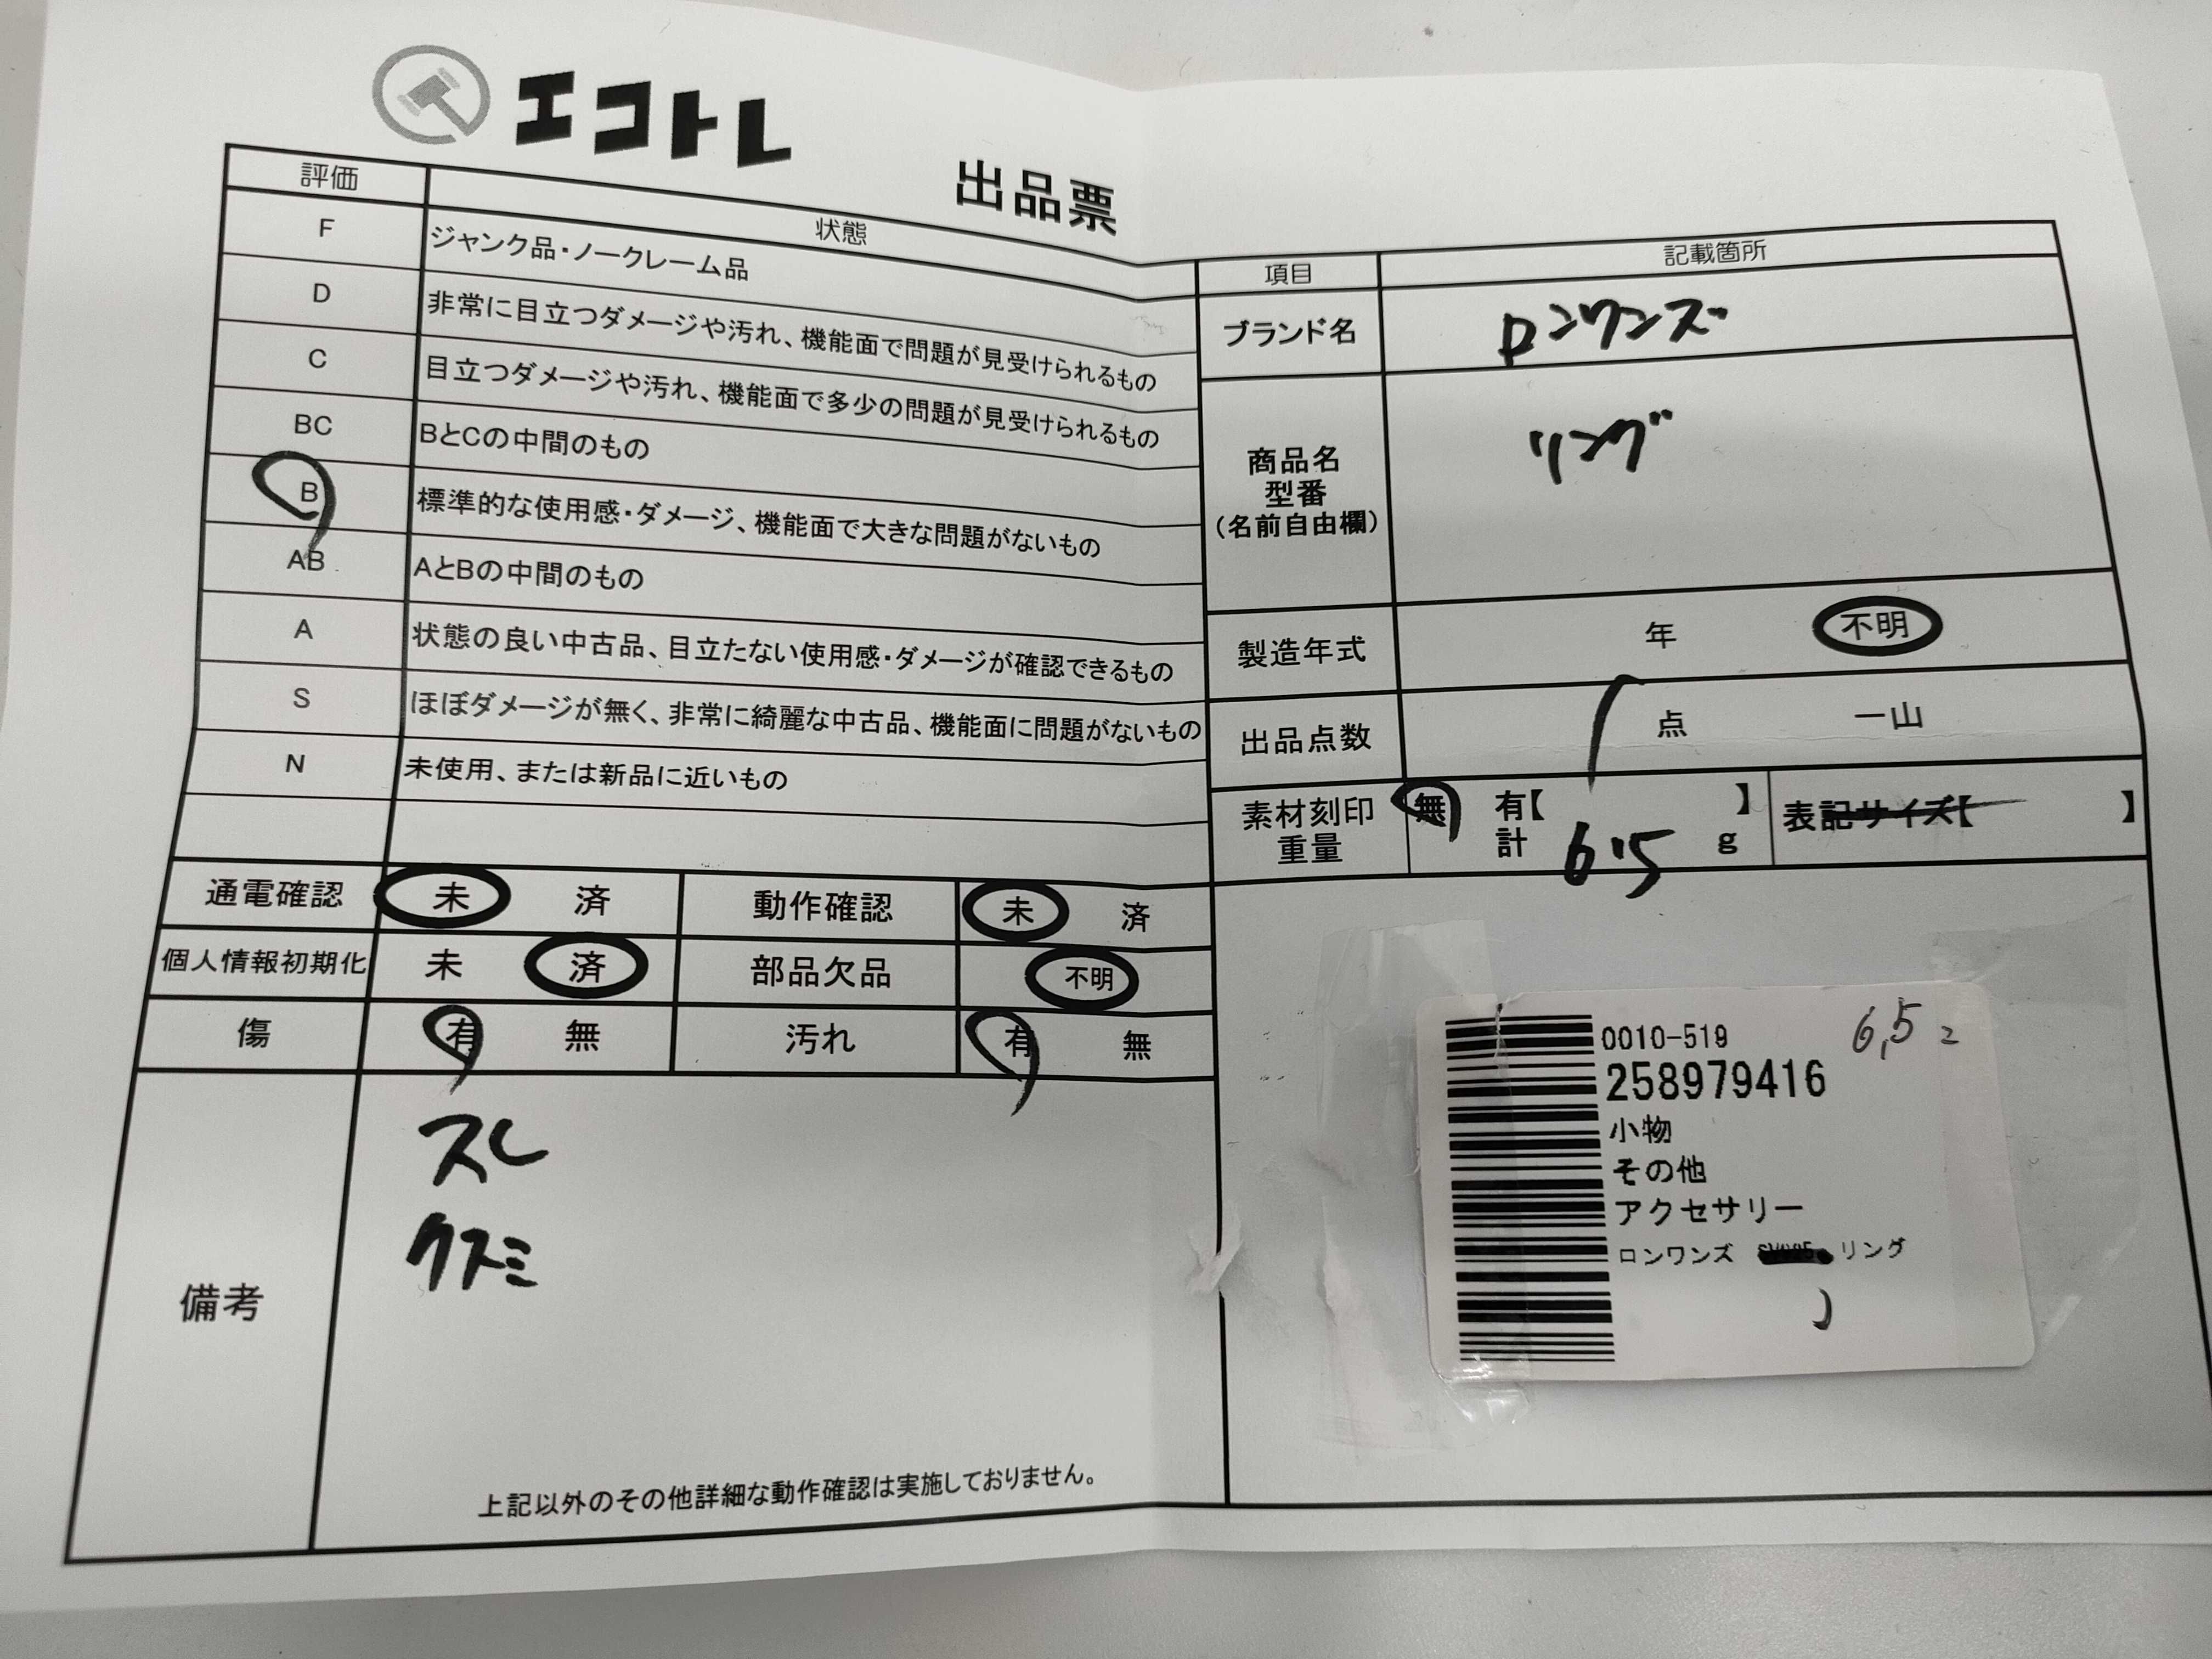 エコトレ
出品票
評価 状態
F ジャンク品・ノークレーム品
D 非常に目立つダメージや汚れ、機能面で問題が見受けられるもの
C 目立つダメージや汚れ、機能面で多少の問題が見受けられるもの
BC BとCの中間のもの
B 標準的な使用感・ダメージ、機能面で大きな問題がないもの
AB AとBの中間のもの
A 状態の良い中古品、目立たない使用感・ダメージが確認できるもの
S ほぼダメージが無く、非常に綺麗な中古品、機能面に問題がないもの
N 未使用、または新品に近いもの
通電確認 未 済 動作確認 未 済
個人情報初期化 未 済 部品欠品 不明
傷 有 無 汚れ 有 無
備考
スレ
クスミ
上記以外のその他詳細な動作確認は実施しておりません。
項目 記載箇所
ブランド名 ロンワンズ
商品名
型番
(名前自由欄)
リング
製造年式 年 不明
出品点数 1 点 一山
素材刻印 無 有【 】 表記サイズ【 】
重量 計 6.5 g
0010-519 6,5
258979416
小物
その他
アクセサリー
ロンワンズ リング